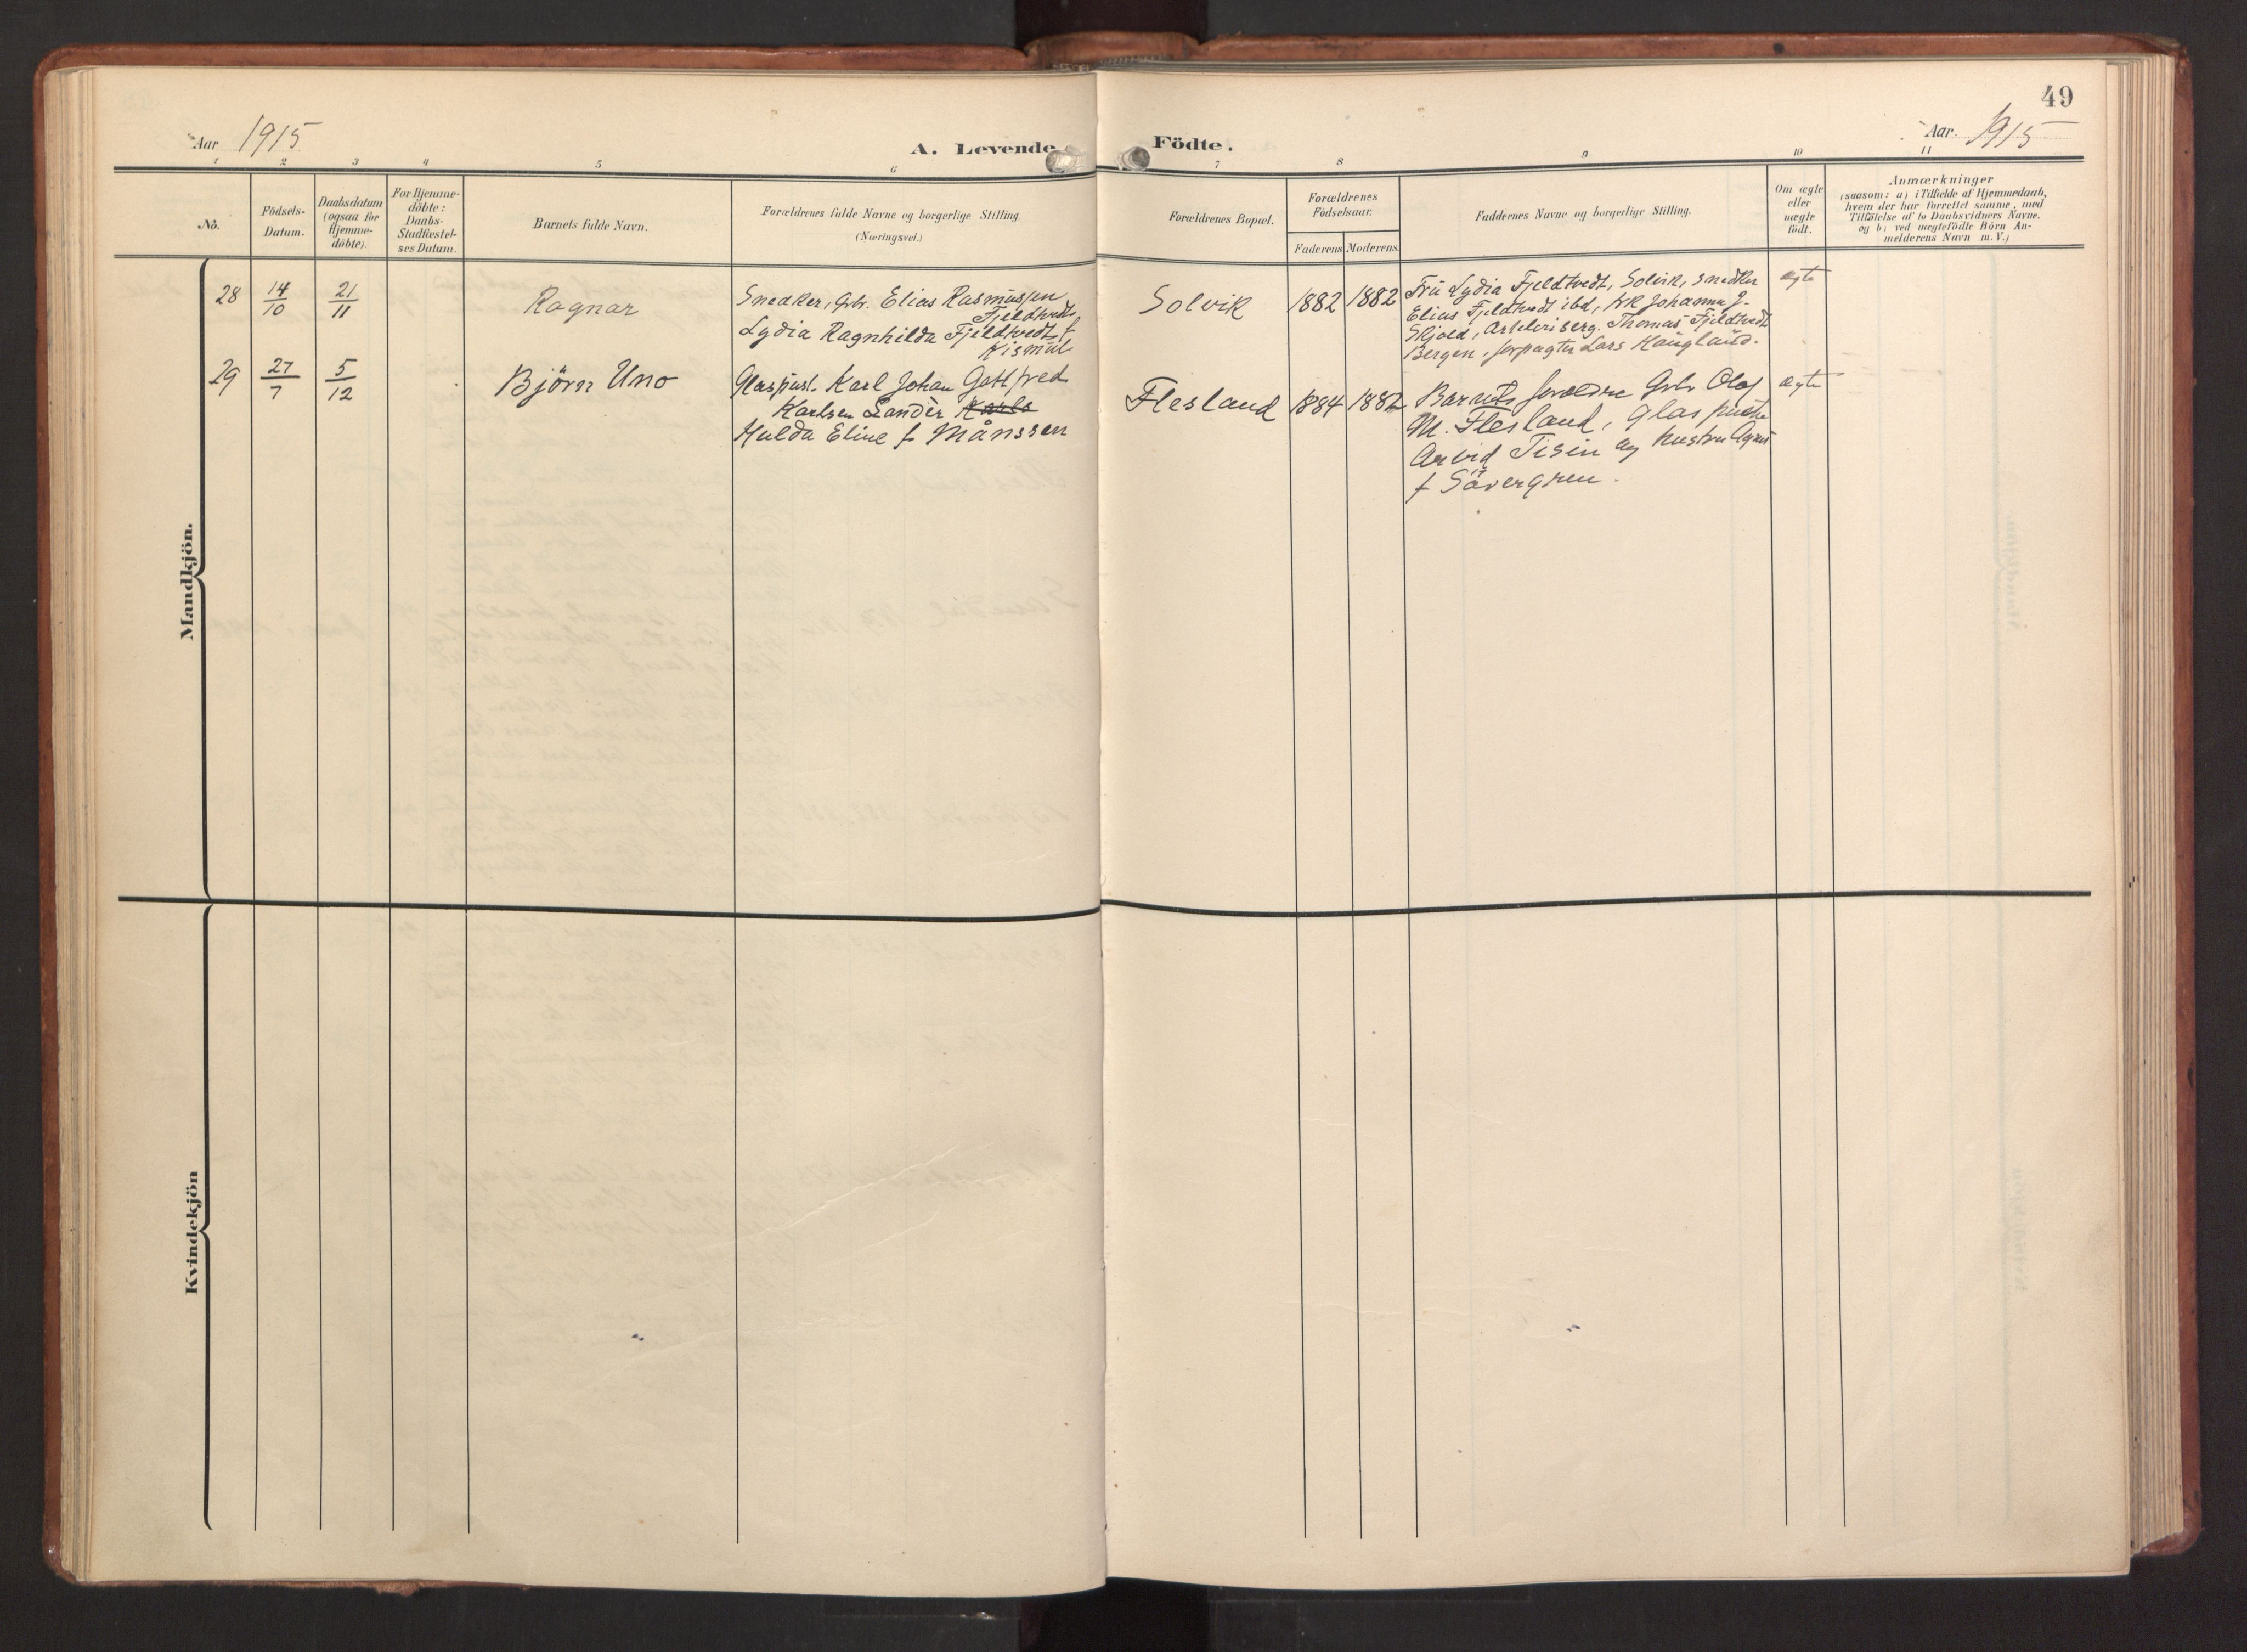 49
Aar 1915
A. Levende
Födte.
Aar. 1915
1 2 3 4 5 6 7 8 9 10 11
No.
Födsels-
Datum.
Daabsdatum
(ogsaa for
Hjemme-
döbte).
For Hjemme-
döbte:
Daabs-
Stadfæstel-
ses Datum.
Barnets fulde Navn.
Forældrenes fulde Navne og borgerlige Stilling.
(Næringsvei.)
Forældrenes Bopæl.
Forældrenes
Födselsaar.
Faderens Moderens.
Faddernes Navne og borgerlige Stilling.
Om ægte
eller
uægte
födt.
Anmærkninger
(saasom: a) i Tilfælde af Hjemmedaab,
hvem der har forrettet samme, med
Tilföielse af to Daabsvidners Navne.
og b) ved uægtefödte Börn An-
melderens Navn m. V.)
Mandkjön.
28
14/10
21/11
Ragnar
Snedker, Gbr. Elias Rasmussen
Fjeldtvedt,
Lydia Ragnhilda Fjeldtvedt f
Kismul
Solvik
1882 1882
Fru Lydia Fjeldtvedt, Solvik, snedker
Elias Fjeldtvedt ibd, frk Johanna J.
Skjold, Thomas Fjeldtvedt
Bergen, forpagter Lars Haugland.
ægte
29
27/7
5/12
Björn Uno
Glaspust. Karl Johan Gottfred
Karlsen Sander Karls
Hulda Eline f Månssen
Flesland
1884 1882
Barnets forældre Gbr Olaf
M. Flesland, Glaspuster
Arvid Tisin og hustru Agnes
f Sövergren.
ægte
Kvindekjön